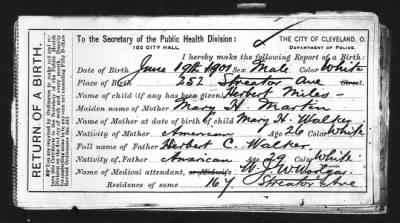 RETURN OF A BIRTH.
To the Secretary of the Public Health Division: THE CITY OF CLEVELAND, O.
102 CITY HALL. DEPARTMENT OF POLICE.
I hereby make the following Report of a Birth:
Date of Birth June 19th 1901 Sex Male Color White
Place of Birth 252 Streator Ave Street
Name of child (if any has been given) Herbert Miles
Maiden name of Mother Mary H. Martin
Name of Mother at date of birth of child Mary H. Walker
Nativity of Mother American Age 26 Color White
Full name of Father Herbert C. Walker,
Nativity of Father American Age 29 Color White
Name of Medical attendant, or Midwife W. J. W.
Residence of same 167 Streator Ave